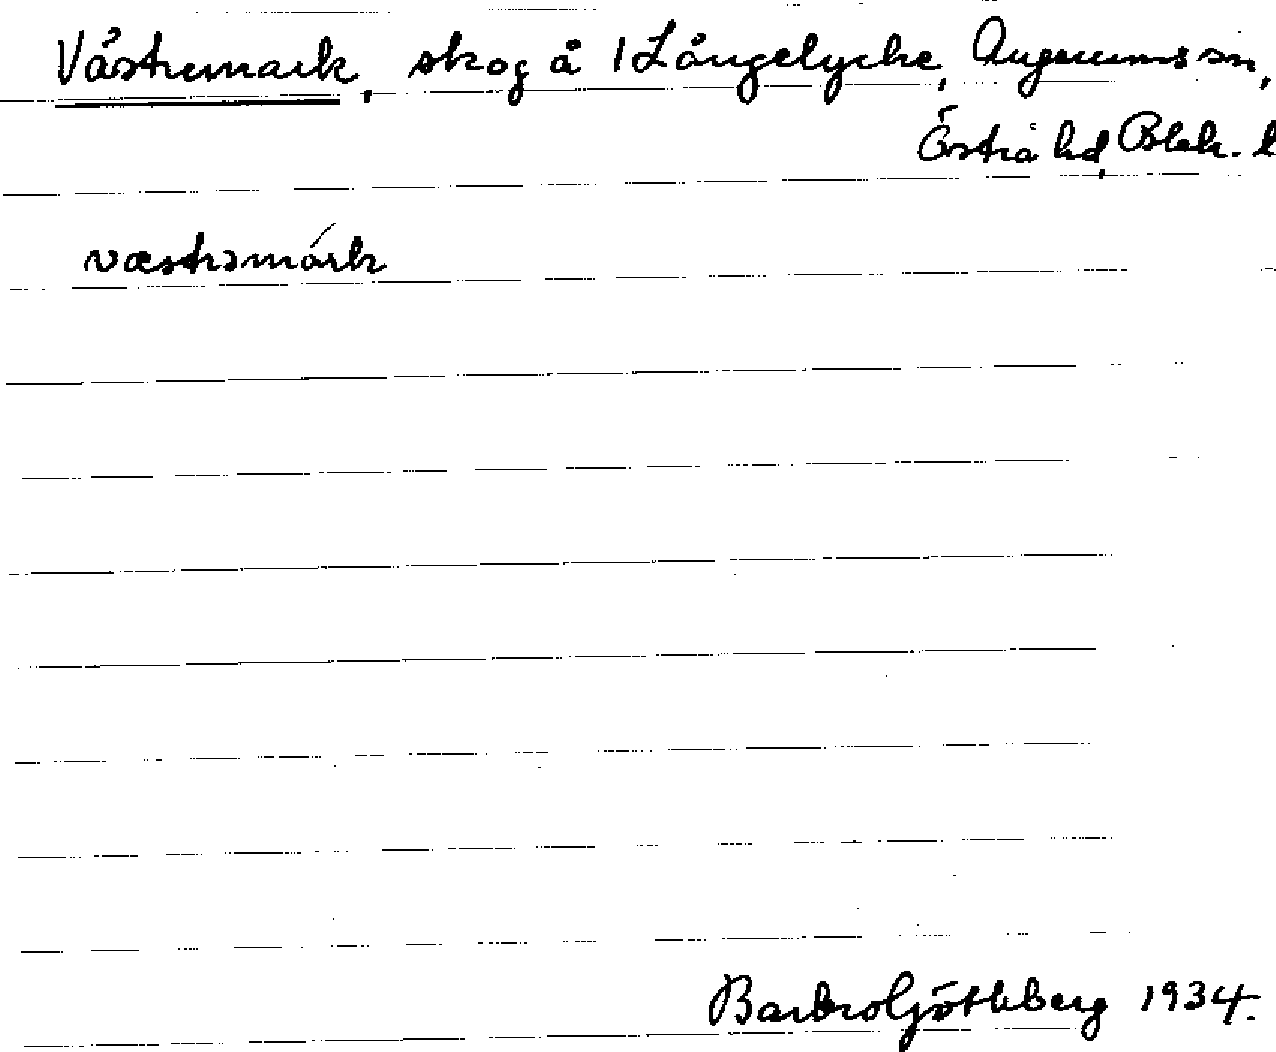 Västremark, skog å 1 Långelycke, Augerums sn,
Östra hd, Blek. l
væstrəmárk
Barbro Götheberg 1934.